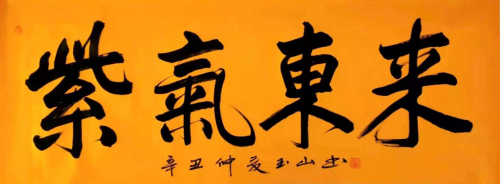 紫氣東来
辛丑仲夏玉山书